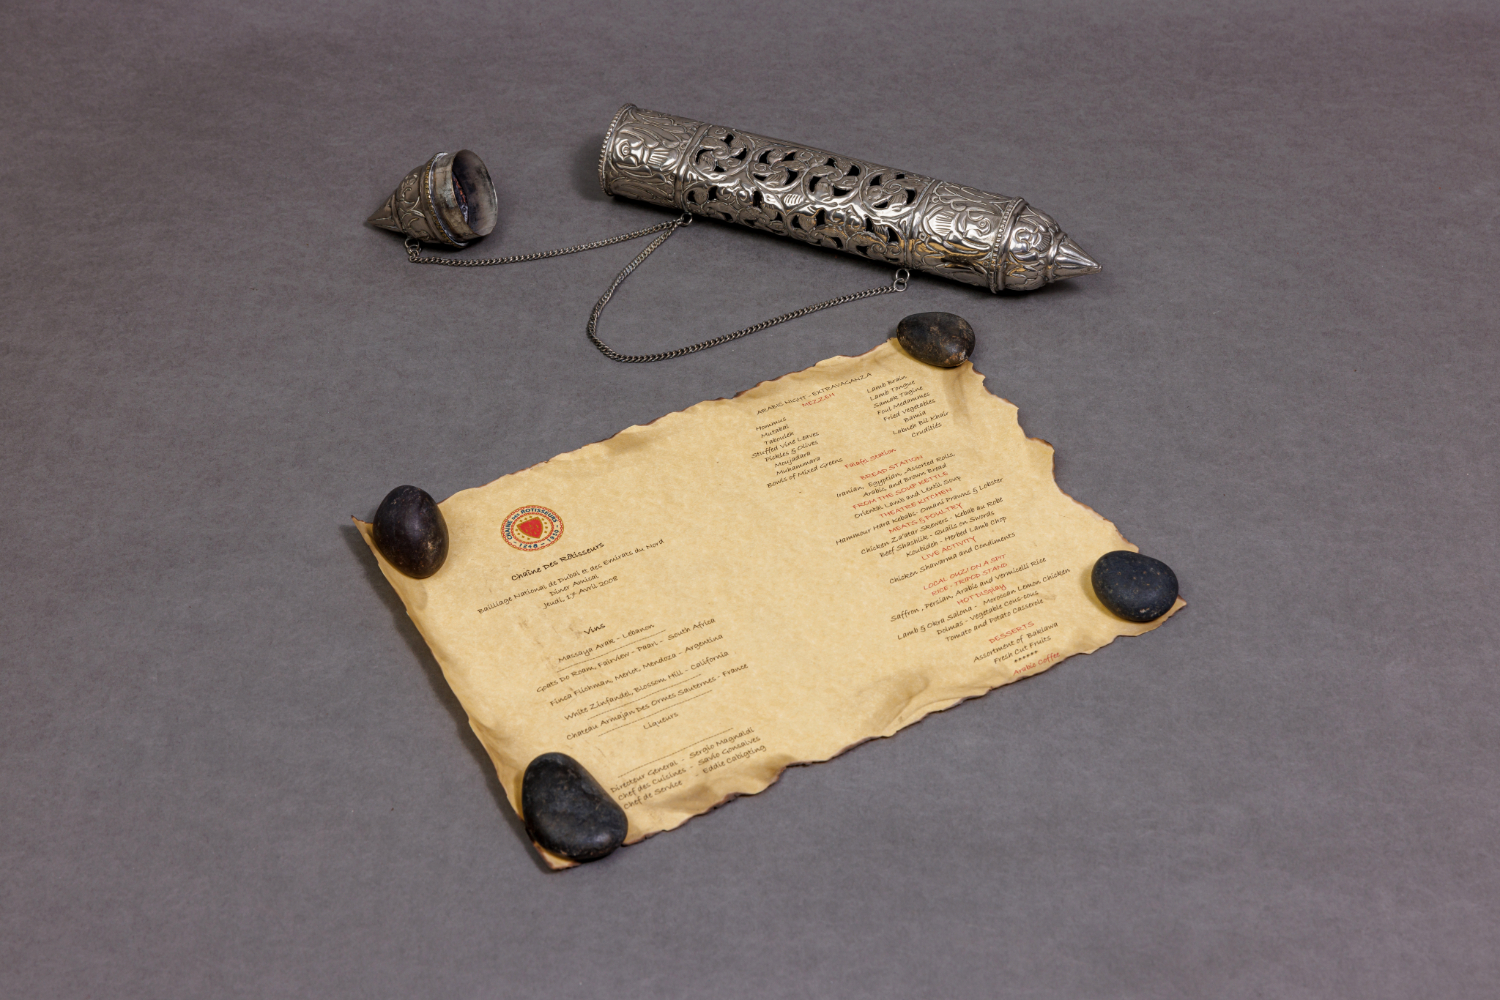 CHAÎNE DES RÔTISSEURS
1248 - 1950
Chaîne Des Rôtisseurs
Bailliage National de Dubai et des Emirats du Nord
Diner Amical
Jeudi, 17 Avril 2008
Vins
Massaya Arak - Lebanon
Goats Do Roam, Fairview - Paarl - South Africa
Finca Flichman, Merlot, Mendoza - Argentina
White Zinfandel, Blossom Hill - California
Chateau Armajan Des Ormes Sauternes - France
Liqueurs
Directeur General - Sergio Magnaldi
Chef des Cuisines - Savio Gonsalves
Chef de Service - Eddie Cabigting
ARABIC NIGHT - EXTRAVAGANZA
MEZZEH
Hommus
Mutabal
Tabouleh
Stuffed Vine Leaves
Pickles & Olives
Moujadara
Muhammara
Bowls of Mixed Greens
Lamb Brain
Lamb Tongue
Samak Tagine
Foul Medammes
Fried Vegetables
Bamia
Labneh Bil Khiar
Crudities
Falafel Station
BREAD STATION
Iranian, Egyptian, Assorted Rolls
Arabic and Brown Bread
FROM THE SOUP KETTLE
Oriental Lamb and Lentil Soup
THEATRE KITCHEN
Hammour Hara Kebabi- Omani Prawns & Lobster
MEATS & POULTRY
Chicken Za'atar Skewers - Kebab au Robe
Beef Shashlik - Quails on Swords
Koubideh - Herbed Lamb Chop
LIVE ACTIVITY
Chicken Shawarma and Condiments
LOCAL OUZI ON A SPIT
RICE - TRIPOD STAND
Saffron, Persian, Arabic and Vermicelli Rice
HOT Display
Lamb & Okra Salona - Moroccan Lemon Chicken
Dolmas - Vegetable Cous-cous
Tomato and Potato Casserole
DESSERTS
Assortment of Baklawa
Fresh Cut Fruits
******
Arabic Coffee